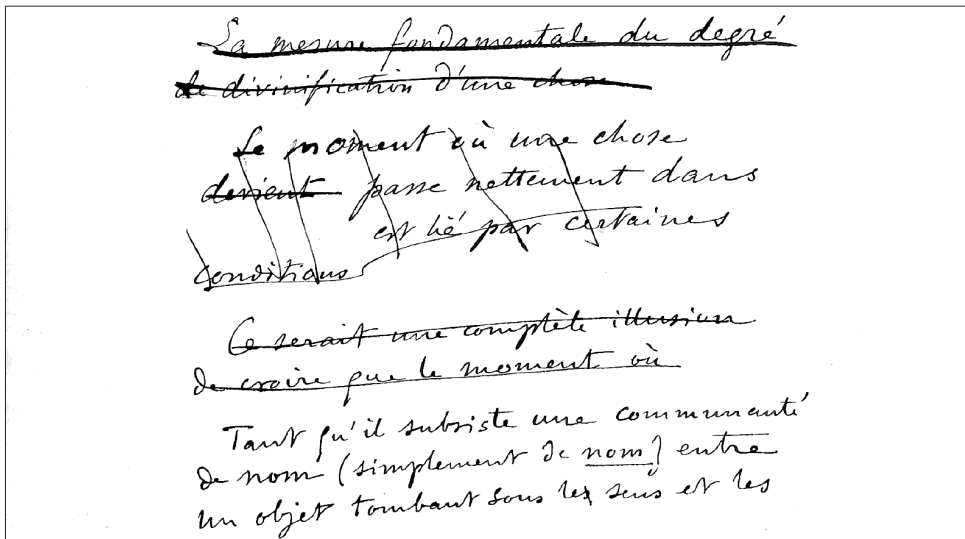 La mesure fondamentale du degré
de divinification d'une chose
Le moment où une chose
devient passe nettement dans
est lié par certaines
conditions
Ce serait une complète illusion
de croire que le moment où
Tant qu'il subsiste une communauté
de nom (simplement de nom) entre
un objet tombant sous les sens et les